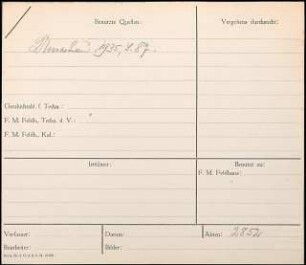 Benutzte Quellen:
Vergebens durchsucht:
1935, S. 87.
Geschichtsbl. f. Techn.:
F. M. Feldh., Techn. d. V.:
F. M. Feldh., Kal.:
Irrtümer:
Benutzt zu:
F. M. Feldhaus:
Verfasser:
Datum:
Akten: 2852
Bearbeiter:
Bilder: